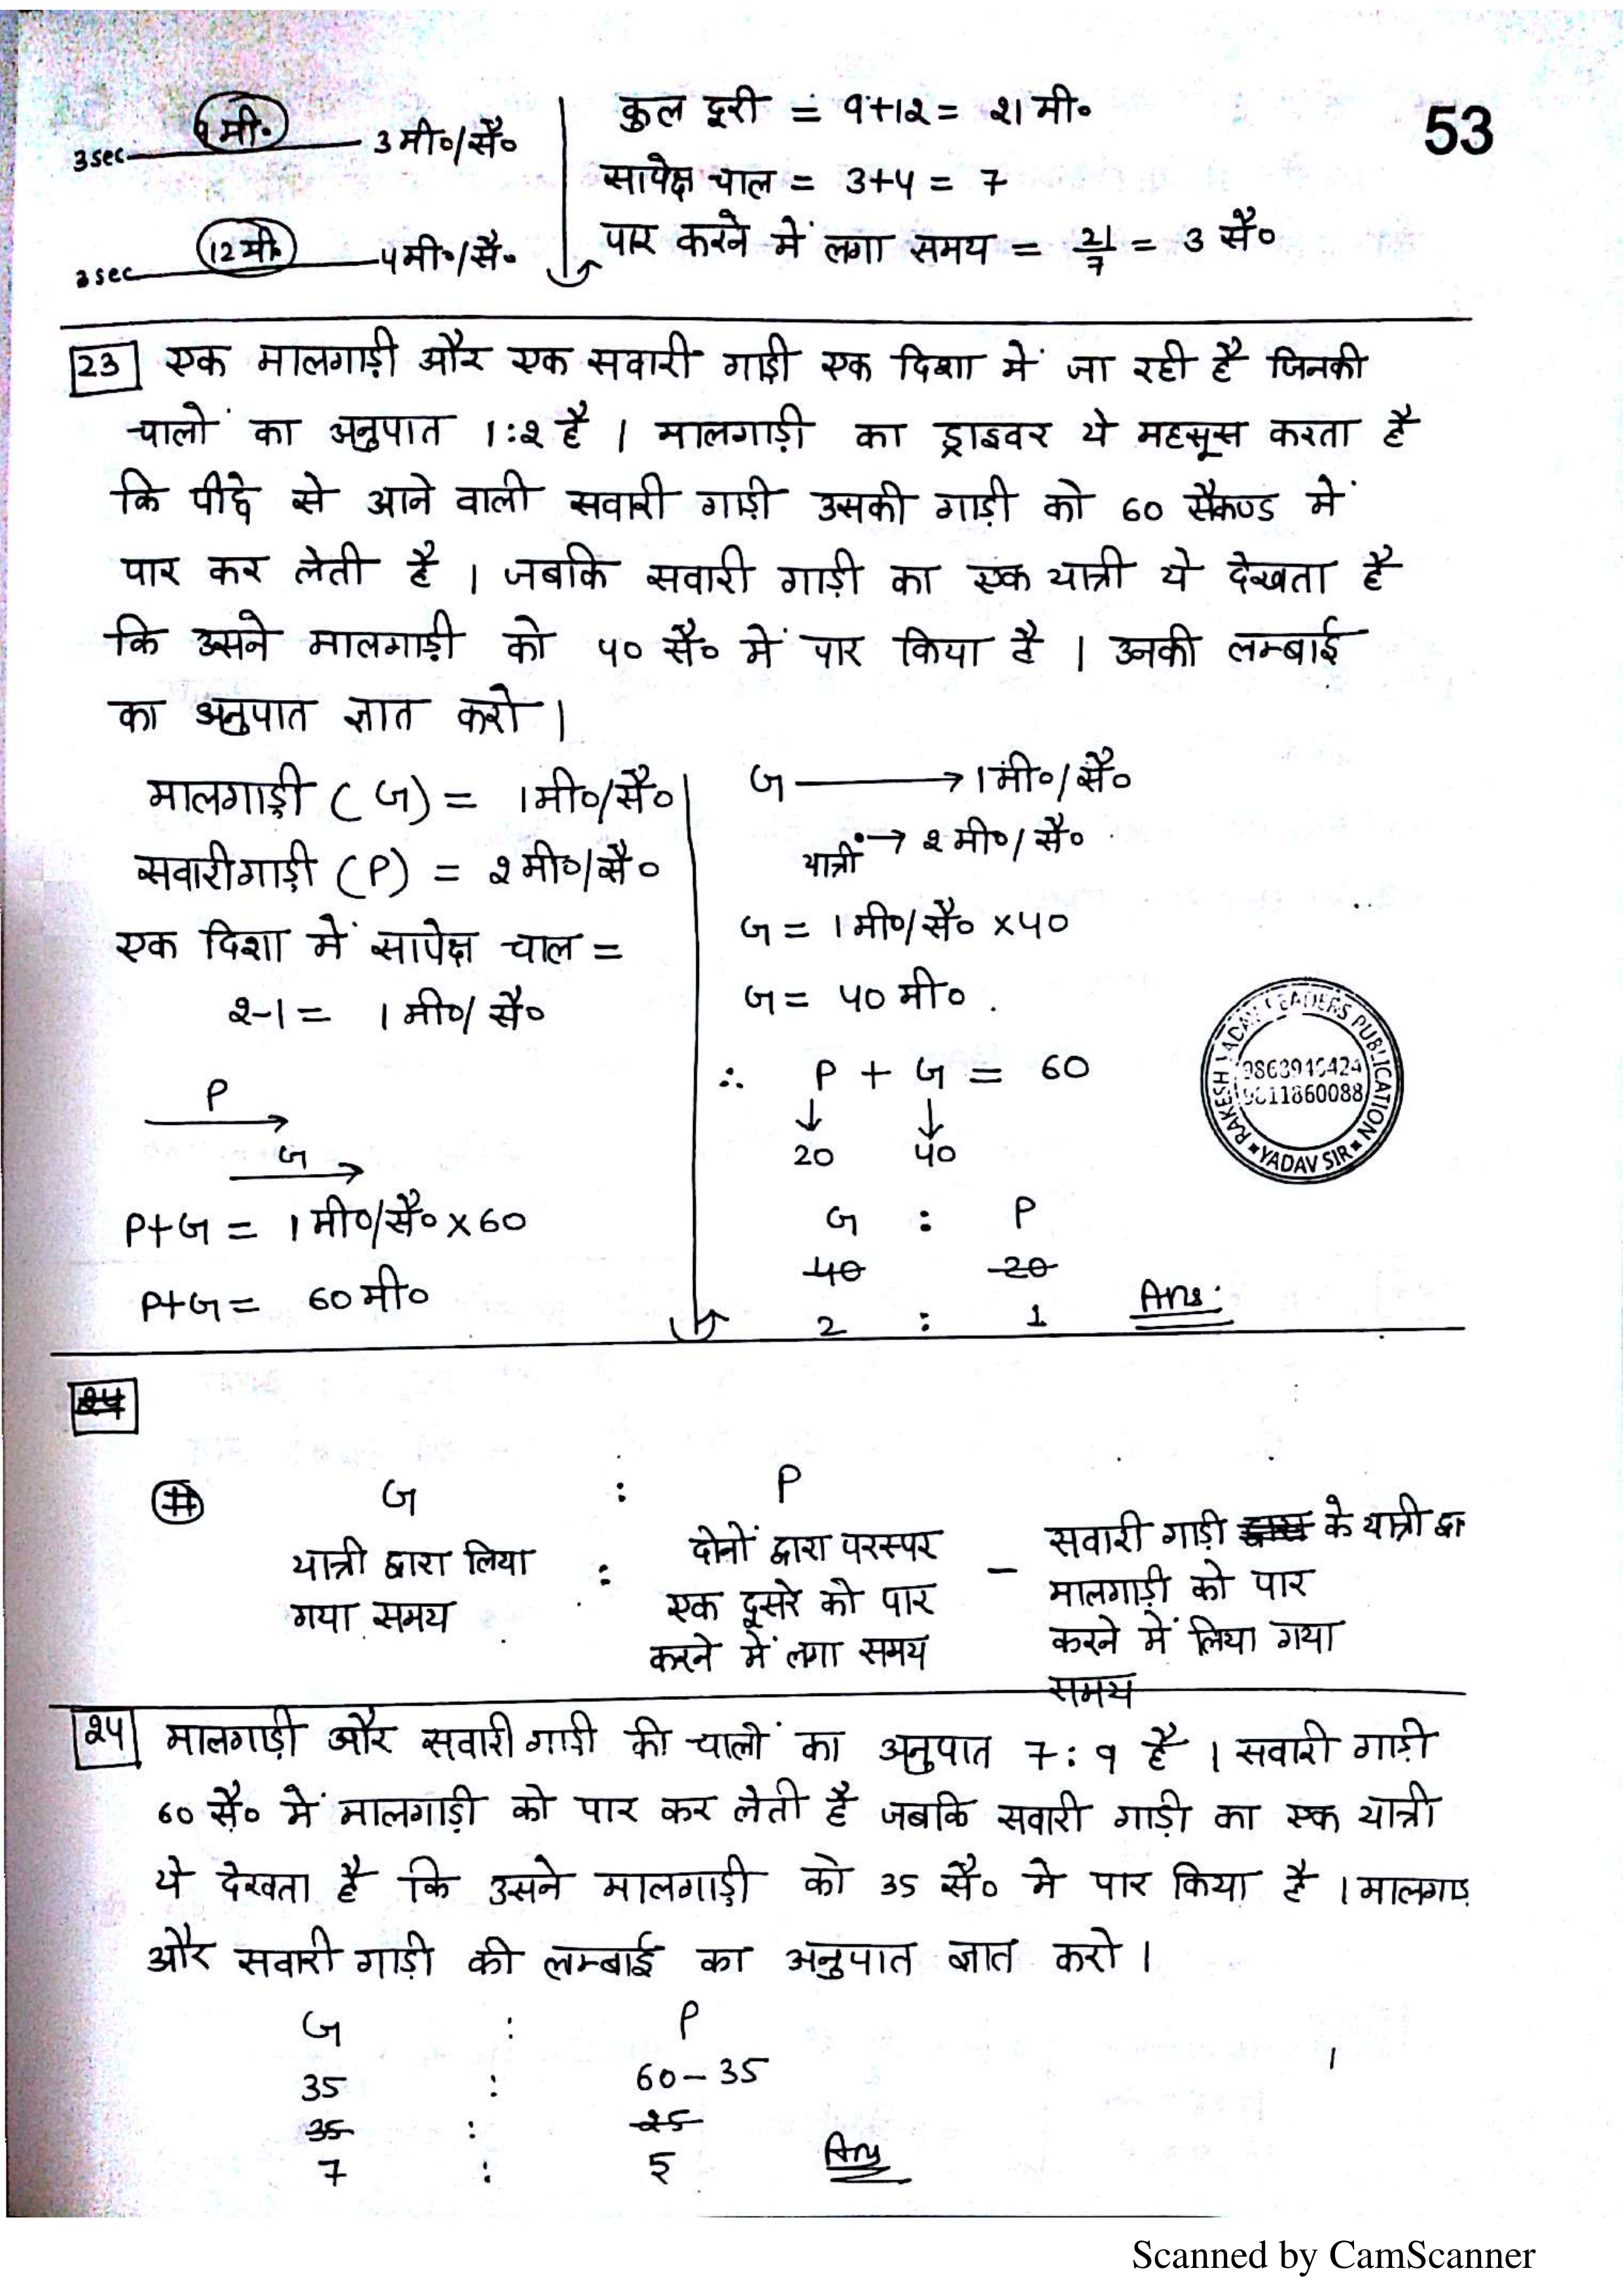 53
9 मी०
3sec 3 मी०/सै०
12 मी०
3sec 4मी०/सै०
कुल दूरी = 9+12 = 21 मी०
सापेक्ष चाल = 3+4 = 7
पार करने में लगा समय = 21/7 = 3 सै०
23 एक मालगाड़ी और एक सवारी गाड़ी एक दिशा में जा रही है जिनकी
चालों का अनुपात 1:2 है । मालगाड़ी का ड्राइवर ये महसूस करता है
कि पीछे से आने वाली सवारी गाड़ी उसकी गाड़ी को 60 सैकण्ड में
पार कर लेती है । जबकि सवारी गाड़ी का एक यात्री ये देखता है
कि उसने मालगाड़ी को 40 सै० में पार किया है । उनकी लम्बाई
का अनुपात ज्ञात करो ।
मालगाड़ी (G) = 1मी०/सै०
सवारी गाड़ी (P) = 2मी०/सै०
एक दिशा में सापेक्ष चाल =
2-1 = 1मी०/सै०
P
G
P+G = 1मी०/सै० x 60
P+G = 60 मी०
G → 1मी०/सै०
यात्री → 2मी०/सै०
G = 1मी०/सै० x40
G = 40 मी०.
∴ P + G = 60
20 40
G : P
40 20
2 : 1 Ans.
RAKESH YADAV READERS PUBLICATION
9868946424
9811860088
YADAV SIR
24
# G : P
यात्री द्वारा लिया : दोनों द्वारा परस्पर - सवारी गाड़ी के यात्री द्वा
गया समय एक दूसरे को पार मालगाड़ी को पार
करने में लगा समय करने में लिया गया
समय
24 मालगाड़ी और सवारी गाड़ी की चालों का अनुपात 7:9 है । सवारी गाड़ी
60 सै० में मालगाड़ी को पार कर लेती है जबकि सवारी गाड़ी का एक यात्री
ये देखता है कि उसने मालगाड़ी को 35 सै० मे पार किया है । मालगाड़
और सवारी गाड़ी की लम्बाई का अनुपात ज्ञात करो ।
G : P
35 : 60-35
35 : 25
7 : 5 Ans
Scanned by CamScanner